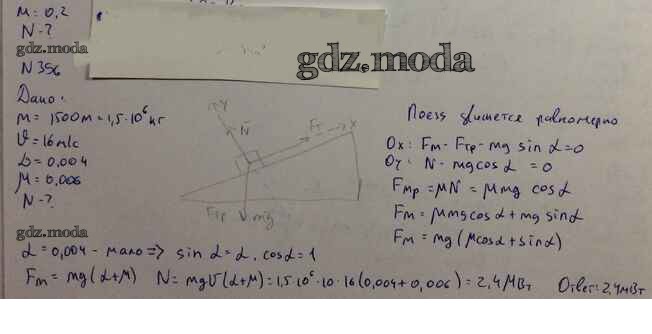 M = 0,2
N - ?
gdz.moda
gdz.moda
N 356
Дано:
m = 1500м = 1,5·10⁶ кг
V = 16 м/с
α = 0,004
μ = 0,006
N - ?
gdz.moda
Y
N
Fт
X
Fтр
mg
Поезд движется равномерно
Ox: Fт - Fтр - mg sin α = 0
Oy: N - mg cos α = 0
Fтр = μN = μmg cos α
Fт = μmg cos α + mg sin α
Fт = mg (μcosα + sinα)
α = 0,004 - мало => sin α = α, cos α = 1
Fт = mg (α + μ) N = mgV (α + μ) = 1,5·10⁶·10·16 (0,004 + 0,006) = 2,4 МВт Ответ: 2,4 МВт